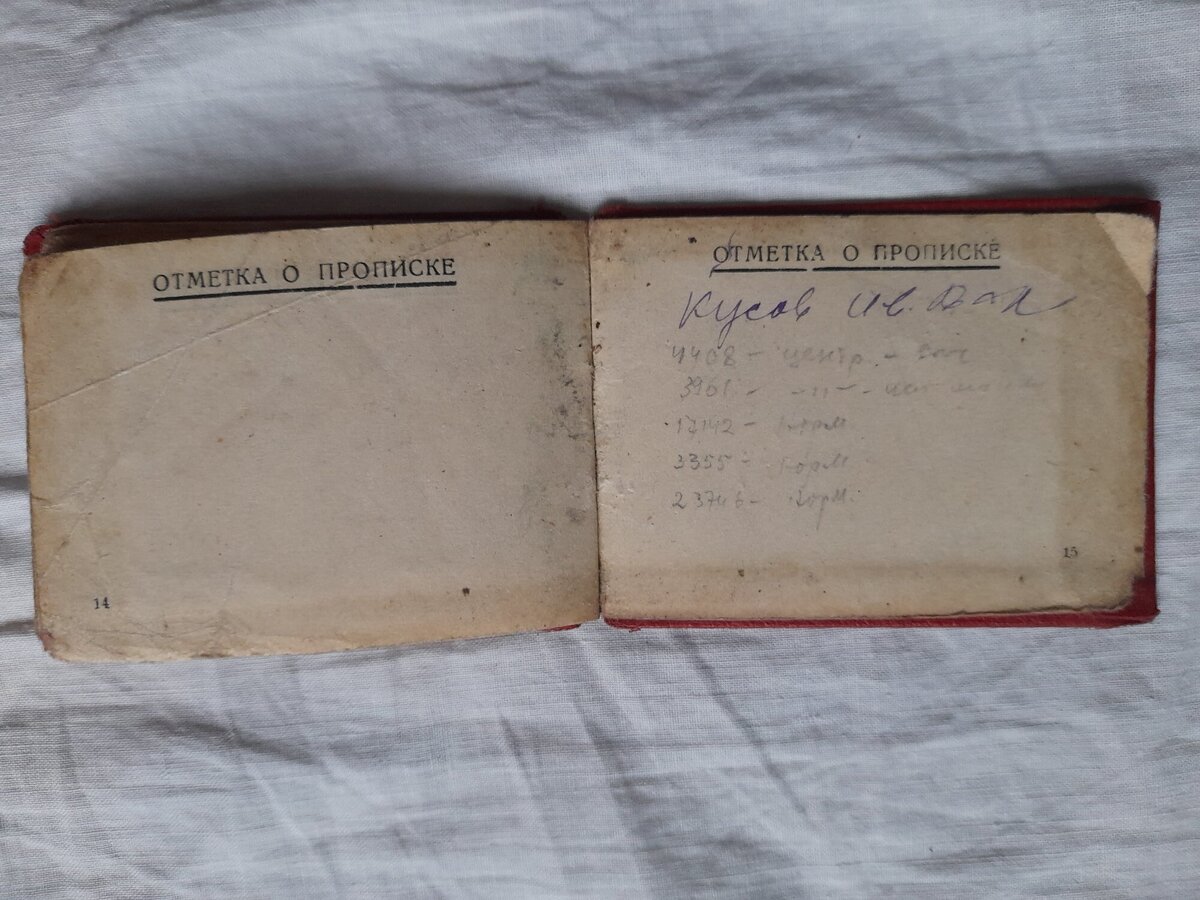 ОТМЕТКА О ПРОПИСКЕ
14
ОТМЕТКА О ПРОПИСКЕ
Кусов Ив.
4408 - центр. -
3961 - -"- -
17142 -
3355 - Корм
23746 - Корм.
15